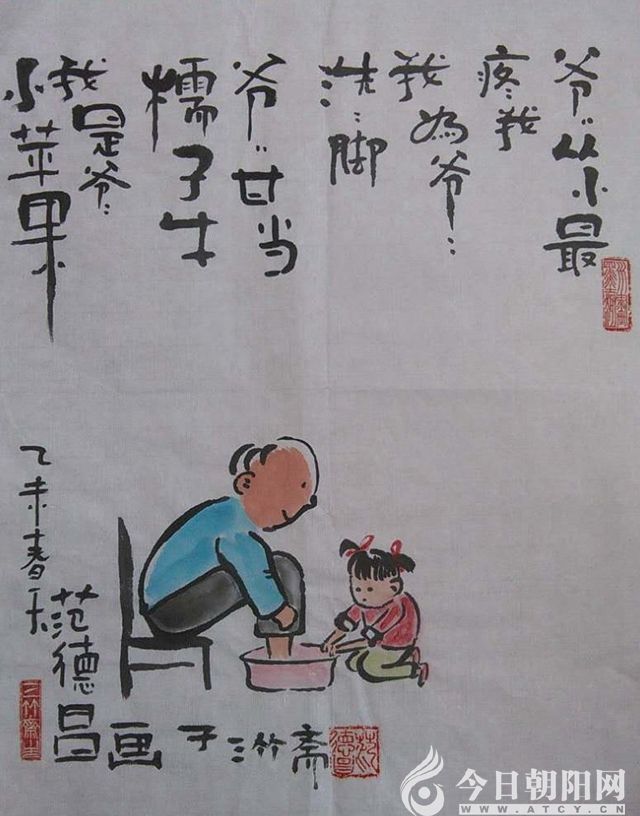 爷〃从小最
疼我
我為爷〃
洗〃脚
爷〃甘当
檽子牛
我是爷〃
小苹果
乙未春天
范德
昌画于三竹斋
今日朝阳网
WWW.ATCY.CN